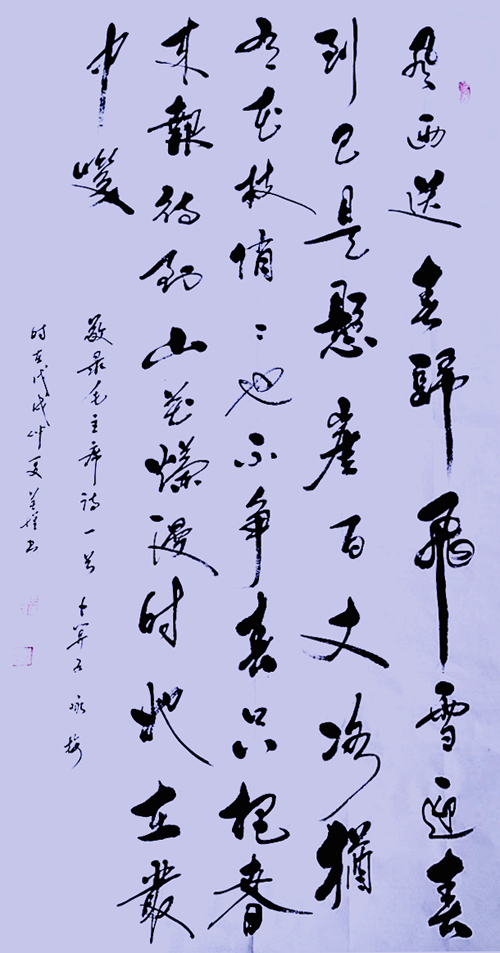 风雨送春歸飛雪迎春
到已是懸崖百丈冰猶
有花枝俏々也不争春只把春
来報待到山花爛漫时她在叢
中笑
敬录毛主席诗一首 卜算子咏梅
时在戊戌仲夏 书